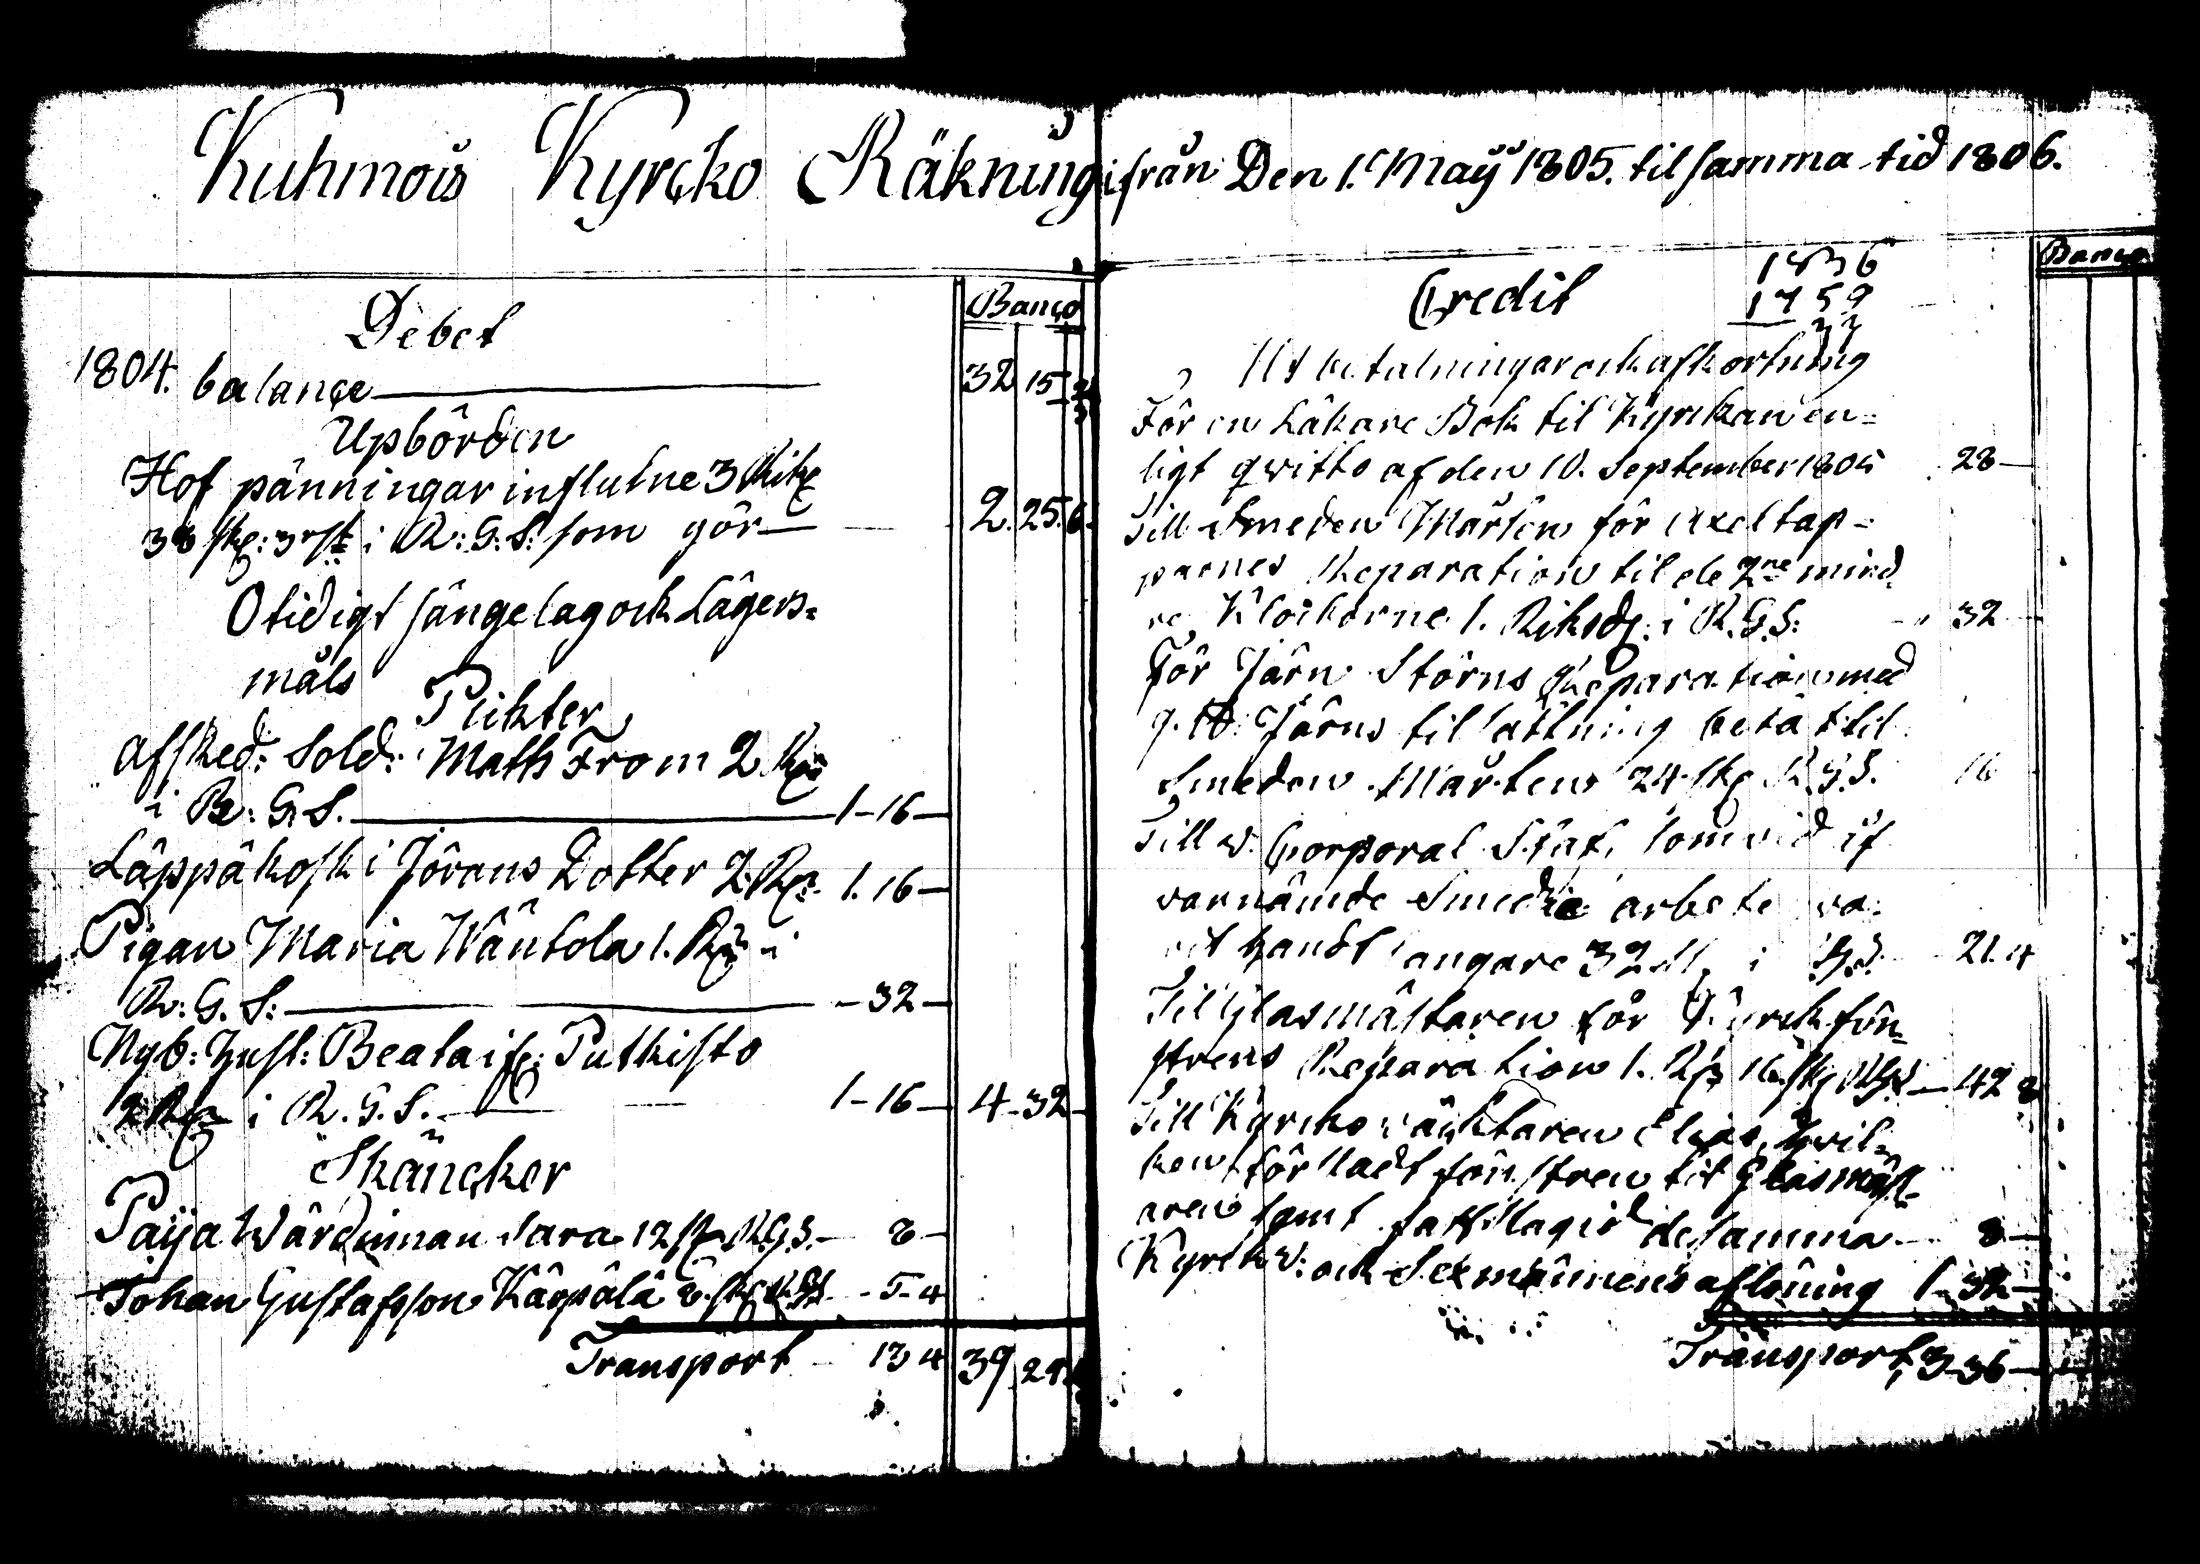 Kuhmois Kyrcko Räkning ifrån Den 1. Maÿ 1805. til samma tid 1806.
Debet
Banco
1804. balance 32 15
Upbörden
Hof pänningar influtne 3
38 sk: 3 rst i R: G: S: som gör 2. 25. 6
Otidigt sängelag ock Lägers-
måls
Pickter
Afsked: Sold: Math From 2
i R: G: S. 1-16
Läppäkoski Jörans Dotter 2 1. 16
Pigan Maria Wäntola 1.
R: G. S: -32
Nyb: Hust: Beata Putkisto
2 i R. G. S. 1-16 4-32
Skäncker
Paija Wärdinnan Sara 12 R.G.S. 8
Johan Gustafsson Kärpälä 8. 5-4
Transport 13 4 39 24
Banco
Credit
1836
1759
Utbetalningar ock afkortning
För en Läkare Bok til Kyrckan en-
ligt qvitto af den 10. September 1805 28
Till Smeden Mårten för Axeltap-
parnes Reparation til de 2ne mind
re Klockorne 1. Riksd: i R.G.S: 32
För Järn Störns Reparation med
Järns tilsättning betalt til
Smeden Mårten 24 sk R.G.S. 16
Till v. Corporal som vid if
varnämde Smedie arbete va-
rit handtlangare 32 i 21. 4
Til Glasmästaren för Kyrck fön-
strens Reparation 1. 16 42 8
Till Kyrcko väcktaren Elias, hvil-
ken fön stren til Glasmäst-
aren samt desamma 8
Kyrck v: ock Sexmännens aflöning 1-32
Transport, 3-36